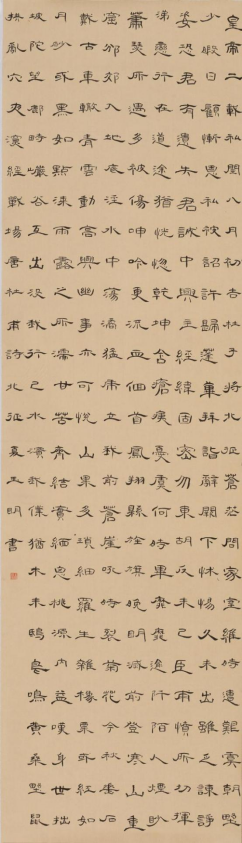 皇帝二載秋閏八月初吉杜子將北征蒼茫問家室維時遭艱虞朝野
少暇日顧慚恩私被詔許歸蓬蓽拜詣辭闕下怵惕久未出雖乏諫諍
姿恐君有遺失君誠中興主經緯固密勿東胡反未已臣甫憤所切揮
涕戀行在道途猶恍惚乾坤含瘡痍憂虞何時畢靡靡逾阡陌人煙眇
蕭瑟所遇多被傷呻吟更流血回首鳳翔縣旌旗晚明滅前登寒山重
窟邠郊入地底涇水中蕩潏猛虎立我前蒼崖吼時裂菊花今登秋垂石
戴古車轍青雲動高興幽事亦可悅山果多瑣細羅生雜橡栗或紅如
丹砂或黑如點漆雨露之所濡甘苦齊結實緬思桃源內益嘆身世拙
坡陀望鄜畤巖谷互出沒我行已水濱我僕猶木末鴟鳥鳴黃桑野鼠
拱亂穴夜深經戰場唐杜甫詩北征夏玉明書